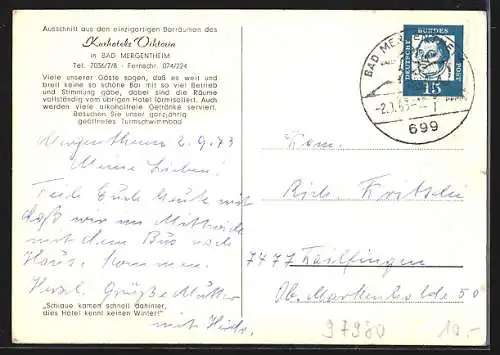 Ausschnitt aus den einzigartigen Barräumen des
Kurhotels Viktoria
in BAD MERGENTHEIM
Tel. 7036/7/8 - Fernschr. 074/224
Viele unserer Gäste sagen, daß es weit und
breit keine so schöne Bar mit so viel Betrieb
und Stimmung gäbe, dabei sind die Räume
vollständig vom übrigen Hotel lärmisoliert. Auch
werden viele alkoholfreie Getränke serviert.
Besuchen Sie unser ganzjährig
geöffnetes Turmschwimmbad
Mergentheim 2.9.63
Meine Lieben!
Teile Euch heute mit
daß wir am Mittwoch
mit dem Bus nach
Hause kommen.
Herzl. Grüße Mutter
"Schlaue kamen schnell dahinter,
dies Hotel kennt keinen Winter!"
mit
DEUTSCHE BUNDESPOST
15
BAD MERGENTHEIM
699
Fam.
7477 Tailfingen
Ob.
50
97980
10.-